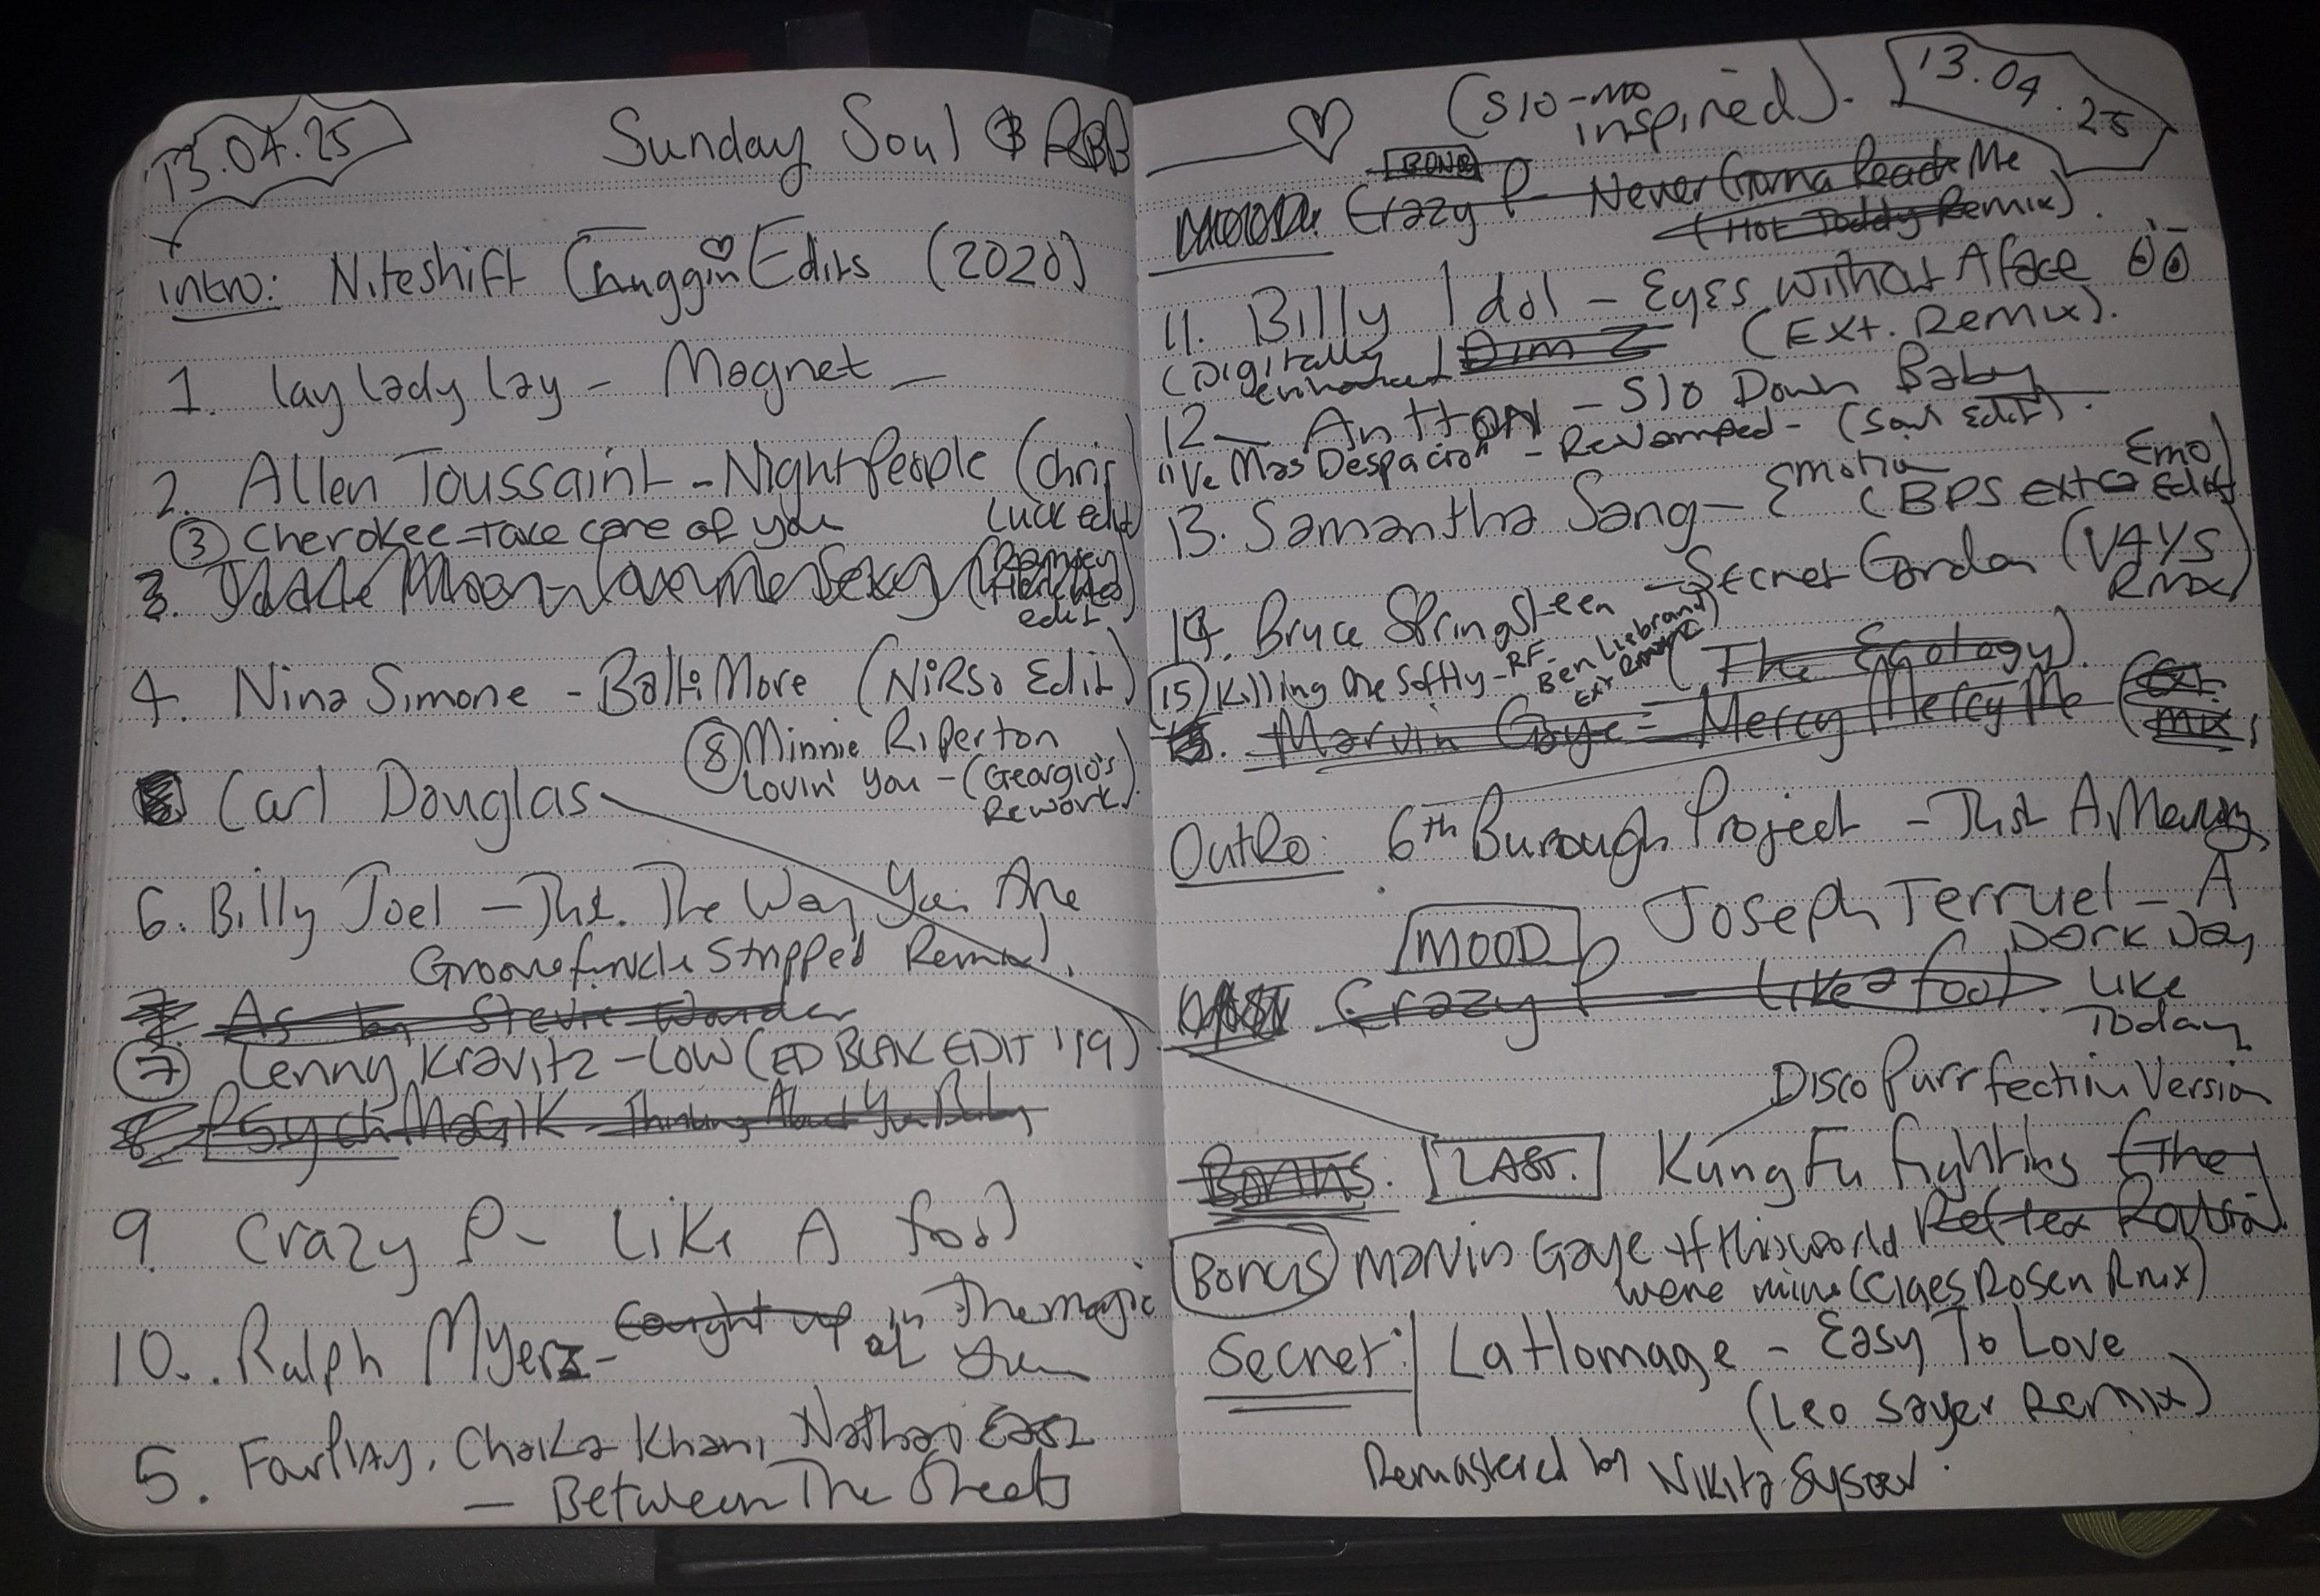 13.04.25
Sunday Soul & R&B
intro: Niteshift Chuggin Edits (2020)
1. lay lady lay - Magnet -
2. Allen Toussaint - Night People (Chris
Luck edit)
③ Cherokee - Take care of you
3.
edit
4. Nina Simone - BaltiMore (NiRSo Edit)
⑧ Minnie Riperton
Lovin' You - (Georgio's
Rework)
Carl Douglas
6. Billy Joel - The Way You Are
Groovefunkle Stripped Remix).
7. As by Stevie Wonder
⑦ Lenny Kravitz - LOW (ED BLAK EDIT '19)
8. PSychMAGIK - Thinking About You Baby
9. Crazy P - Like A fool
10. Ralph Myerz - Caught up in The magic
of You
5. FourPlay, Chaka Khan, Nathan East
- Between The Sheets
(Slo-mo
inspired).
13.04.25
BONUS
MOOD: Crazy P - Never Gonna Reach Me
(Hot Toddy Remix).
11. Billy Idol - Eyes Without A face
(Ext. Remix).
(Digitally
enhanced
12. AnttON - Slo Down Baby
"Ve Mas Despacio" - Revamped - (Soul Edit).
13. Samantha Sang - Emotion
(BPS extra Emo
Edit)
14. Bruce Springsteen - Secret Garden (V4YS
RMX)
⑮ Killing Me Softly - RF -
Ben Liebrand
Ext Remix
(The Ecology).
15. Marvin Gaye = Mercy Mercy Me (Ext.
mix)
OutRo: 6th Burough Project - Just A Memory
MOOD Joseph Terruel - A
Dark Day
Like
Today
Crazy P - Like a fool
Disco Purrfection Version
Bonus: LAST. Kung Fu fighting (The
Reflex Revision)
Bonus Marvin Gaye If this world
were mine (Claes Rosen Rmx)
Secret: La Homage - Easy To Love
(Leo Sayer Remix)
Remastered by Nikita Sysoev.